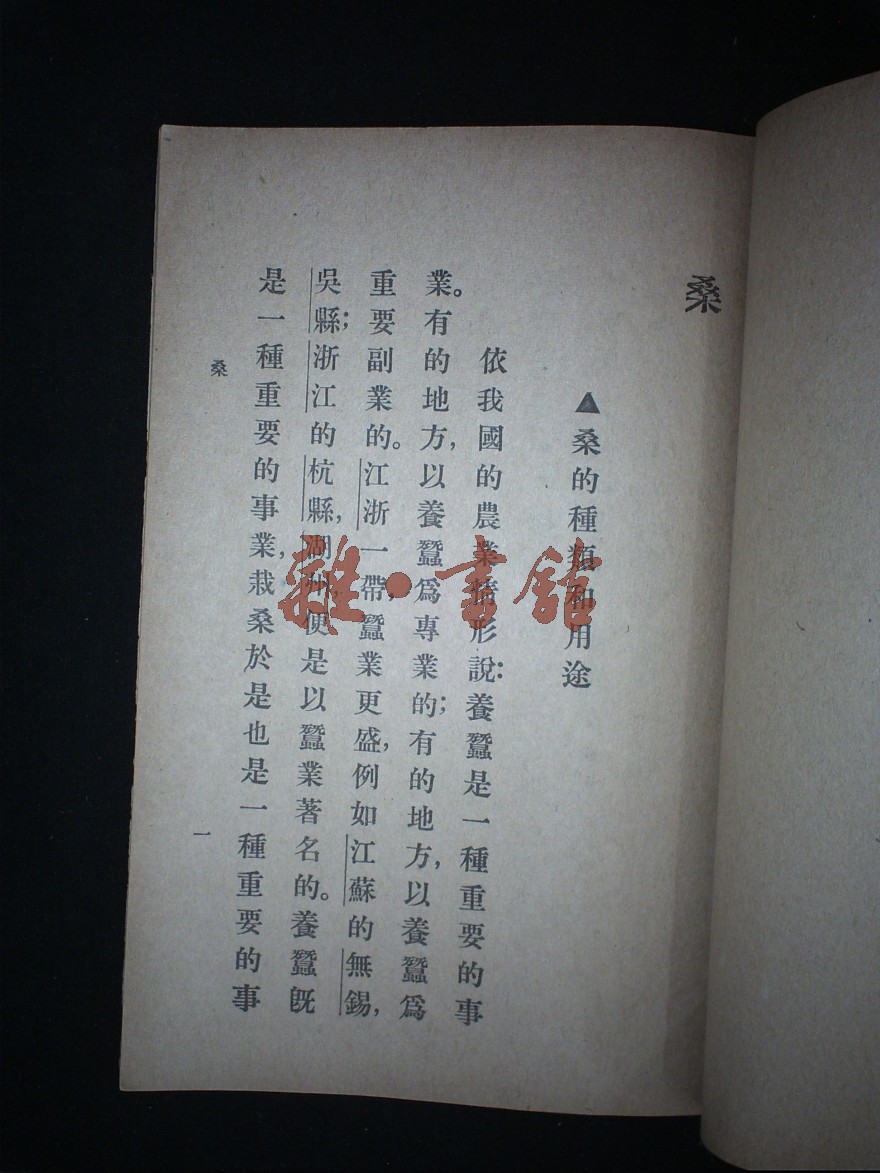 桑
▲桑的種類和用途
依我國的農業情形說：養蠶是一種重要的事
業。有的地方，以養蠶爲專業的；有的地方，以養蠶爲
重要副業的。江浙一帶，蠶業更盛，例如江蘇的無錫，
吳縣；浙江的杭縣，湖州，便是以蠶業著名的。養蠶旣
是一種重要的事業，栽桑於是也是一種重要的事
桑
一
雜·書館